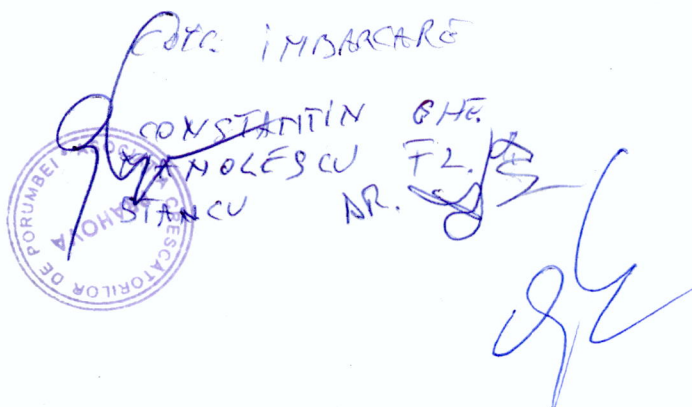 COM. IMBARCARE
CONSTANTIN GHE.
MANOLESCU FL.
STANCU AR.
ASOCIAȚIA CRESCĂTORILOR DE PORUMBEI
PRAHOVA